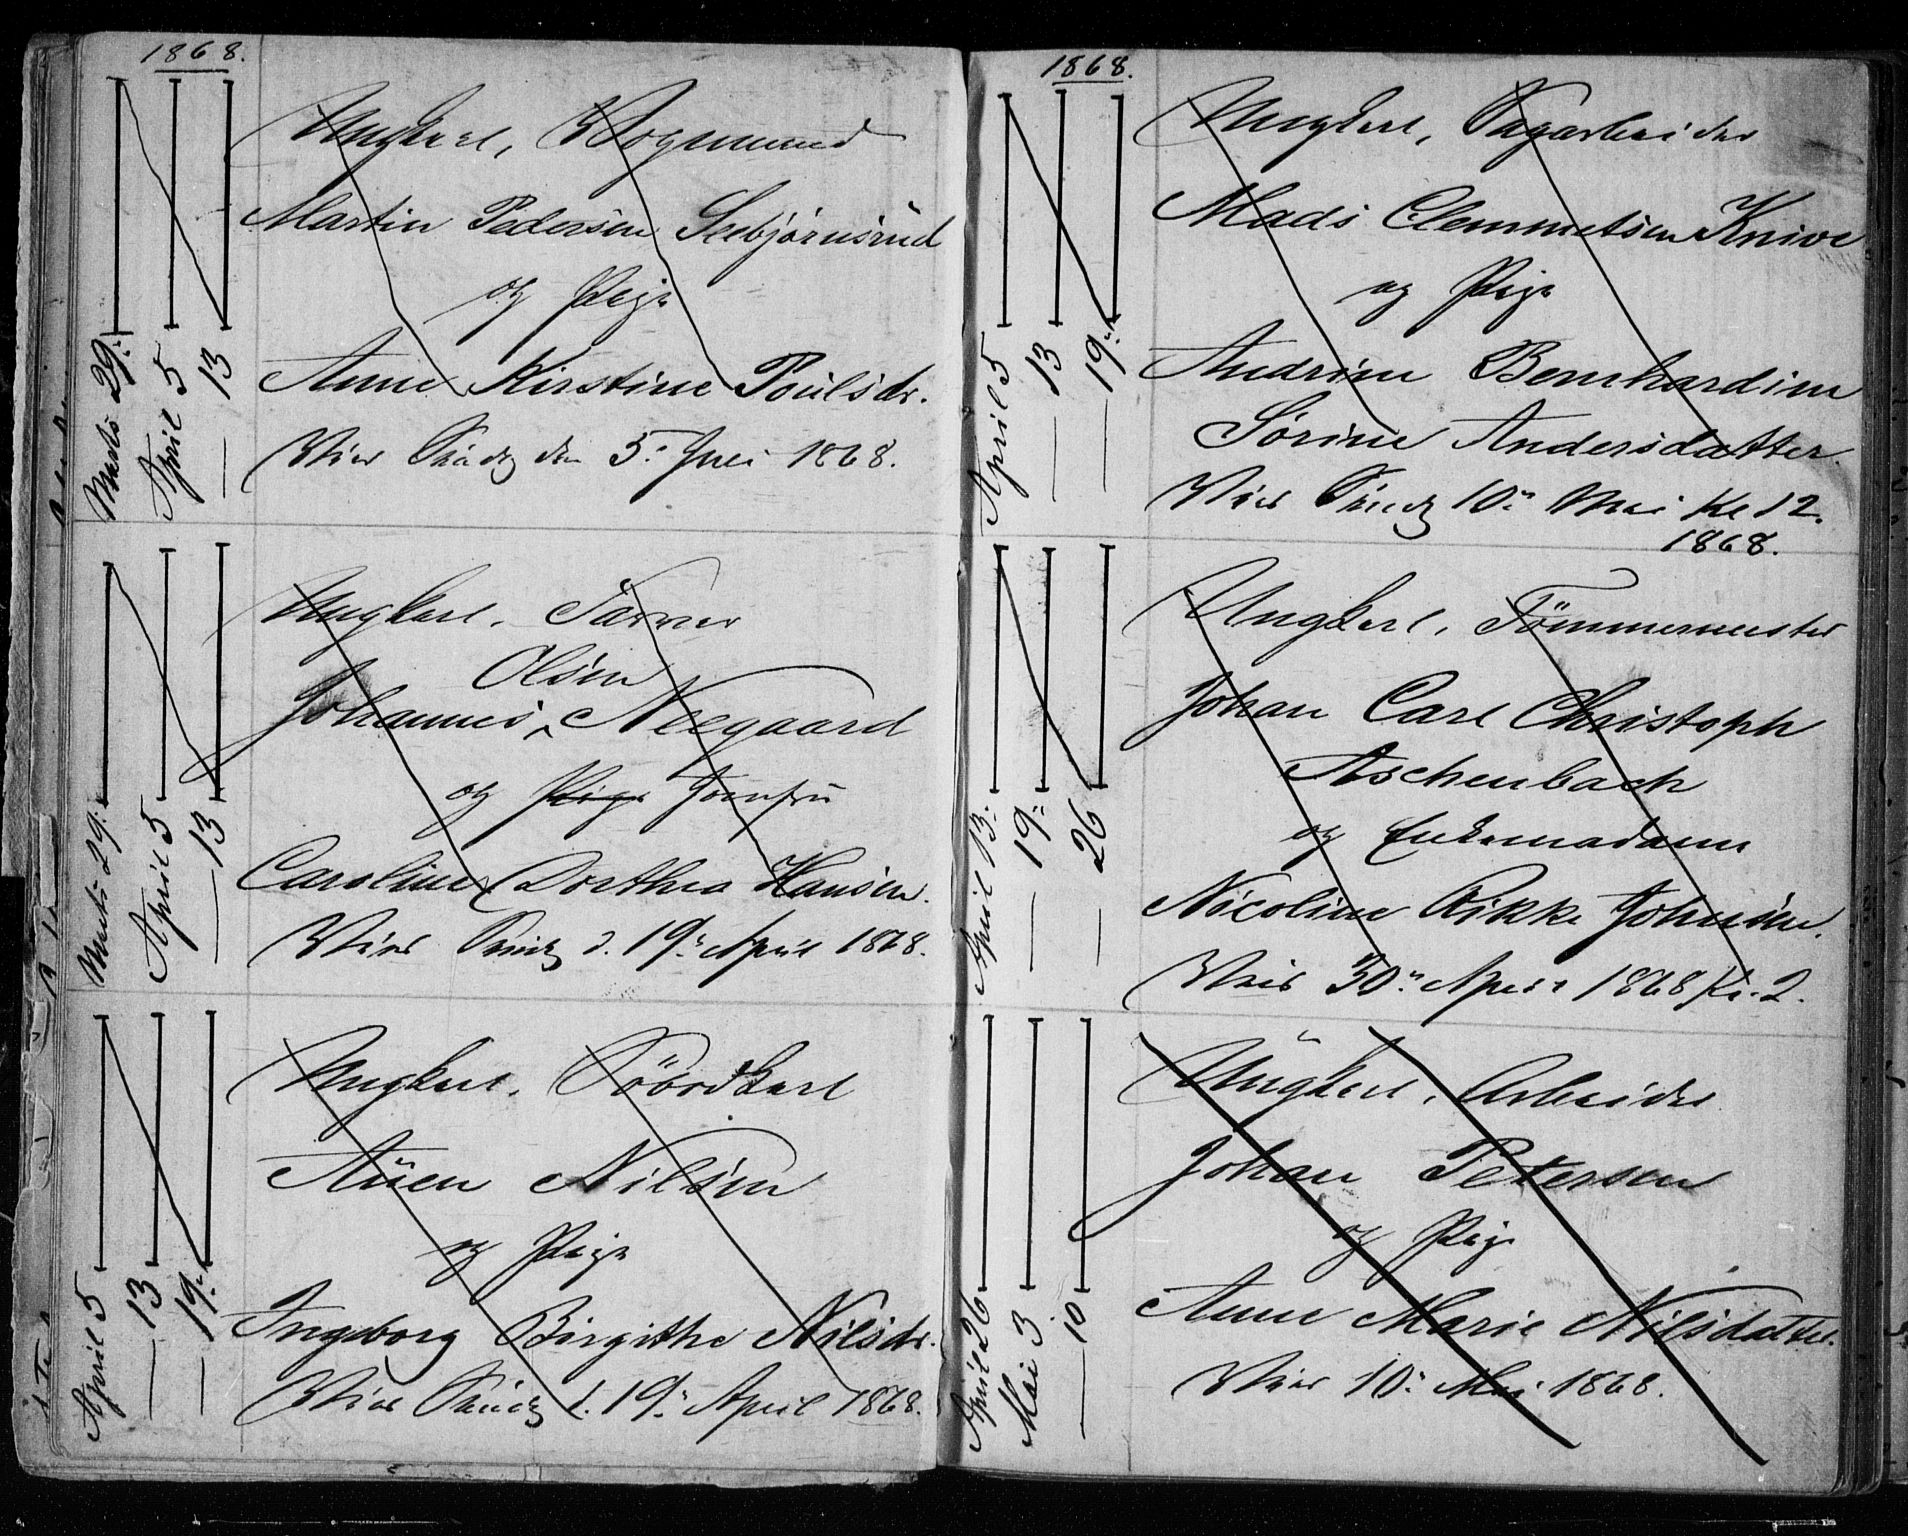 1868.
Marts 29:
April 5
— 13
Ungkarl, Vognmand
Martin Pedersen Seebjørnsrud
og Pige
Anne Kirstine Poulsdr.
Viet Sønd. den 5: Juli 1868.
Marts 29:
April 5
— 13
Ungkarl. Farver
Olsen
Johannes ^ Neegaard
og Pige Jomfru
Caroline Dorthea Hansen.
Viet Sønd. d. 19: April 1868.
April 5
— 13
— 19:
Ungkarl.
Auen Nilsen
og Pige
Ingeborg Birgithe Nilsdr.
Viet Sønd. d. 19: April 1868.
1868.
April 5
— 13
— 19:
Ungkarl, Sagarbeider
Mads Clemmetsen Knive
og Pige
Andrine Bernhardine
Sørine Andersdatter.
Viet Sønd. 10: Mai Kl 12.
1868.
April 13:
— 19:
— 26
Ungkarl, Tömmermester
Johan Carl Christoph
Aschenbach
og Enkemadame
Nicoline Rikke Johnsen.
Viet 30: April 1868 Kl. 2.
April 26
Mai 3
— 10
Ungkarl, Arbeider
Johan Petersen
og Pige
Anne Marie Nilsdatter.
Viet 10: Mai 1868.